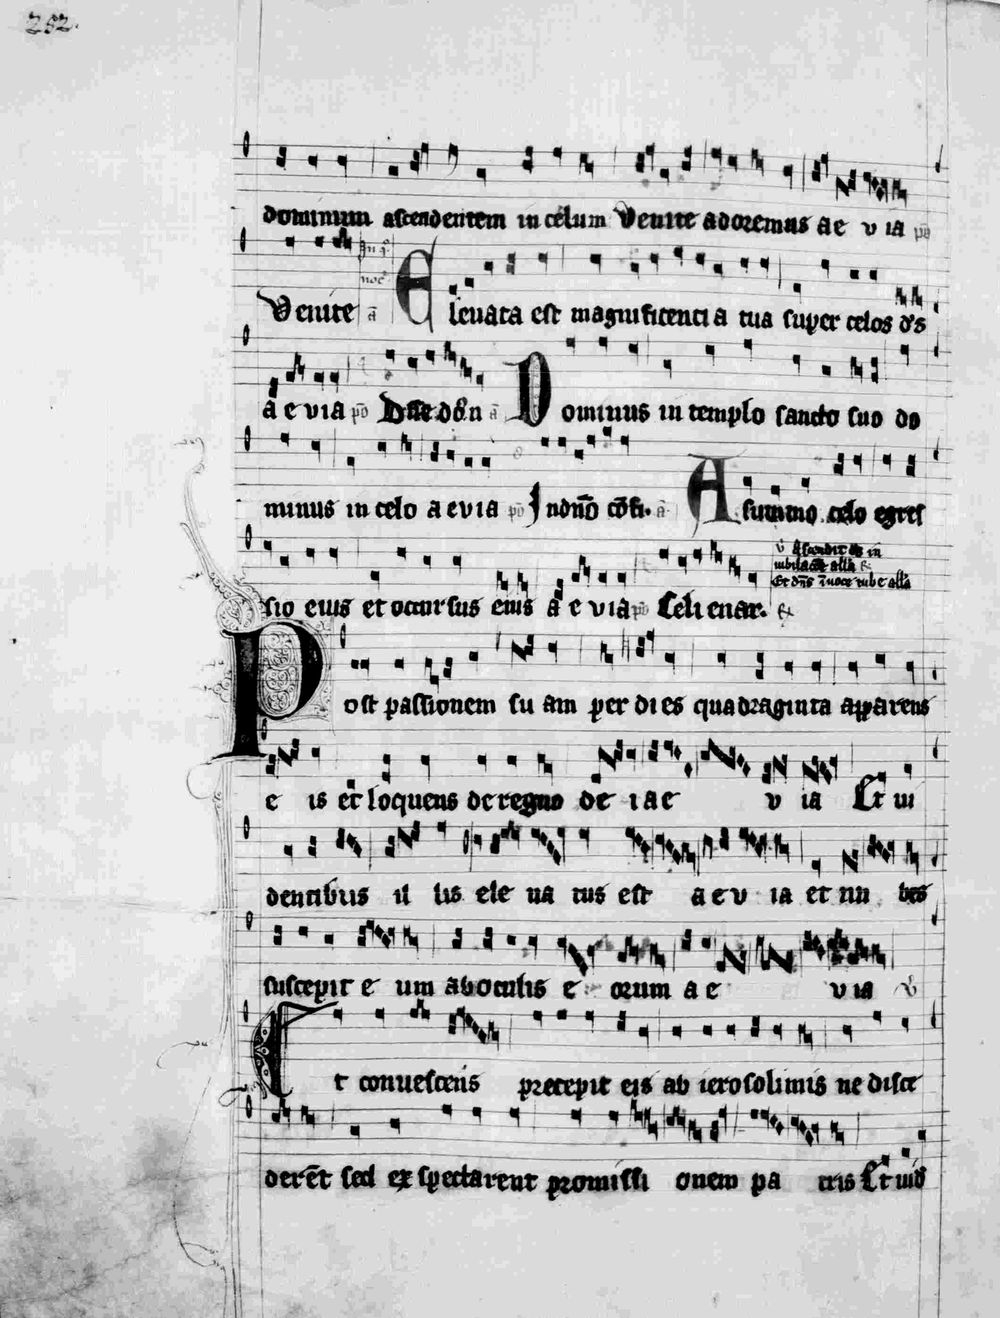 252.
dominum ascendentem in celum Venite adoremus ae v ia ps
Venite In i noc a Eleuata est magnificenti a tua super celos ds
a e via ps Dne dn n a Dominus in templo sancto suo do
minus in celo a evia ps In dno confi. a A summo celo egres
sio eius et occursus eius a e via ps Celi enar.
v Ascendit ds in
iubilacone alla
Et dns i uoce tube alla
Post passionem su am per di es quadraginta apparens
e is et loquens de regno de i a e v ia Et ui
dentibus il lis ele ua tus est a e v ia et nu bes
suscepit e um ab oculis e orum a e v ia v
Et conuescens precepit eis ab ierosolimis ne disce
deret sed ex spectarent promissi onem pa tris Et uid